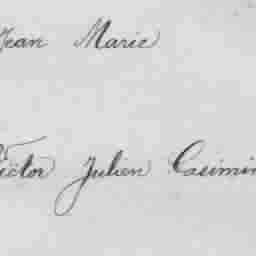 Jean Marie
Victor Julien Casimir